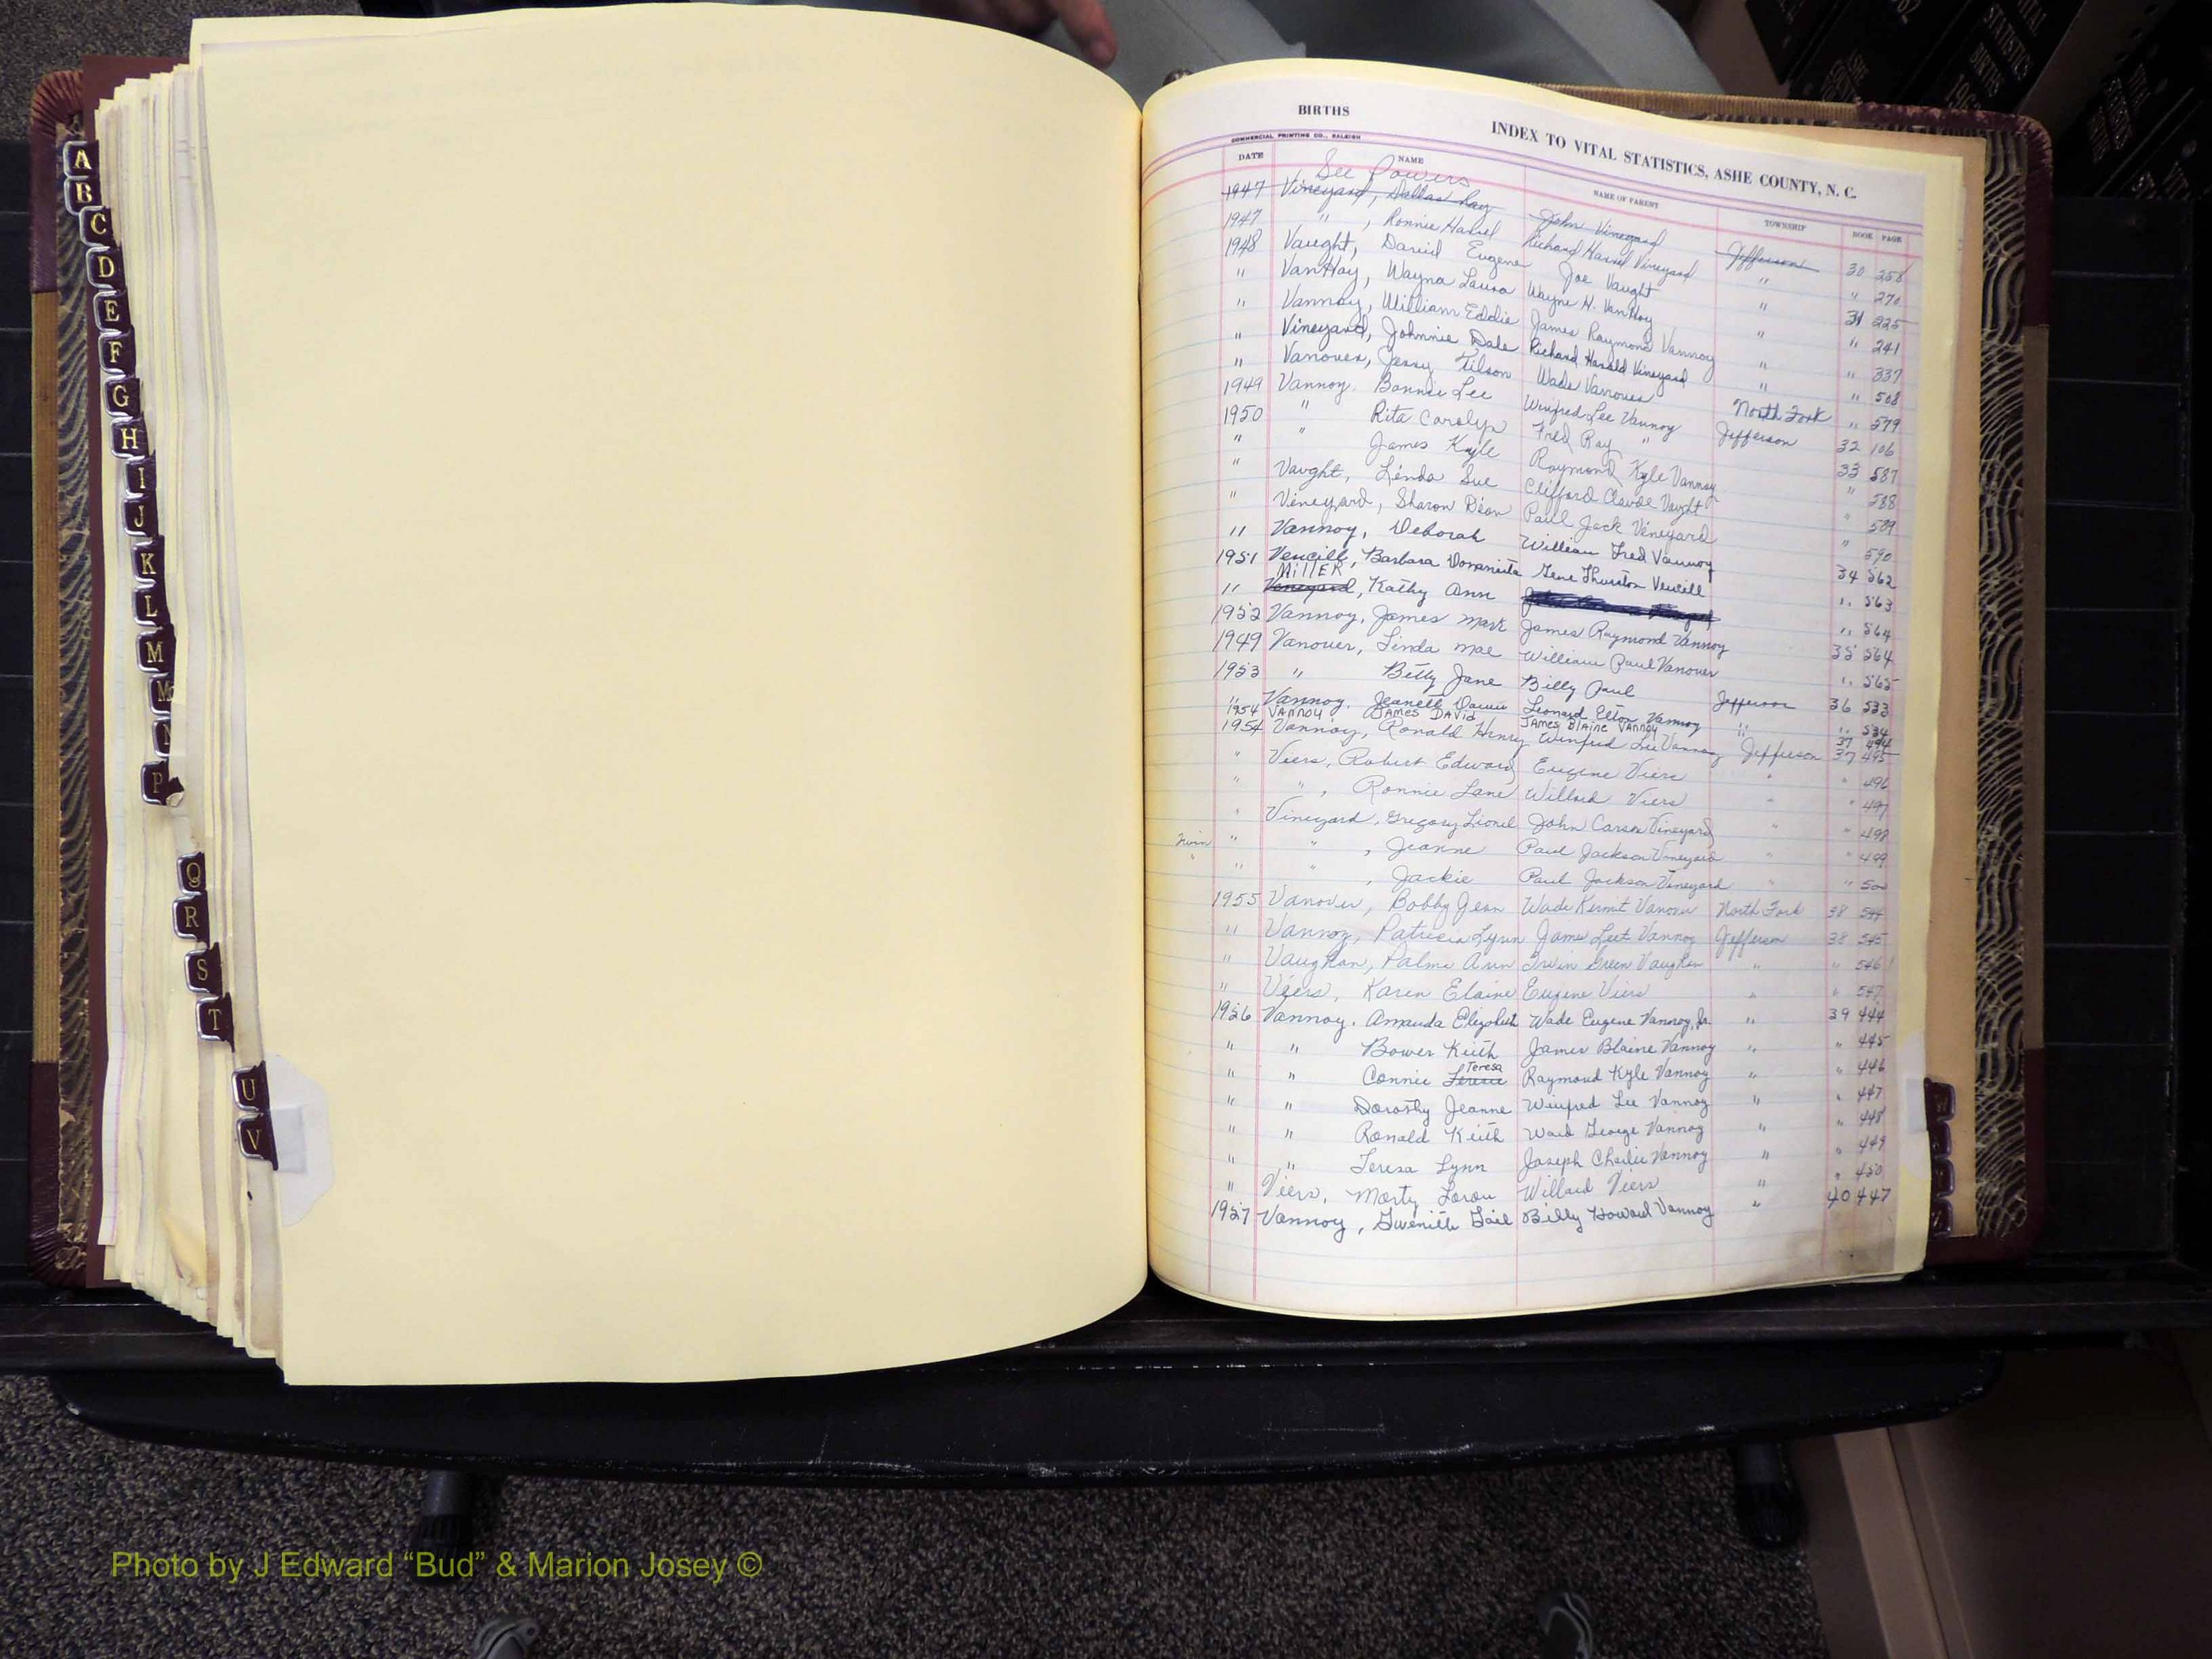 A
B
C
D
E
F
G
H
I
J
K
L
M
M
N
P
Q
R
S
T
U
V
BIRTHS
INDEX TO VITAL STATISTICS, ASHE COUNTY, N. C.
COMMERCIAL PRINTING CO., RALEIGH
DATE NAME NAME OF PARENT TOWNSHIP BOOK PAGE
See Powers
1947 Vineyard, Dallas Ray John Vineyard Jefferson 30 258
1947 " , Ronnie Harrel Richard Harrel Vineyard " " 270
1948 Vaught, David Eugene Joe Vaught " 31 225
" VanHoy, Wayna Laura Wayne H. VanHoy " " 241
" Vannoy, William Eddie James Raymond Vannoy " " 337
" Vineyard, Johnnie Dale Richard Harold Vineyard " " 508
" Vanover, Jerry Filson Wade Vanover North Fork " 579
1949 Vannoy, Bonnie Lee Winfred Lee Vannoy Jefferson 32 106
1950 " Rita Carolyn Fred Ray " 33 587
" " James Kyle Raymond Kyle Vannoy " 588
" Vaught, Linda Sue Clifford Claude Vaught " 589
" Vineyard, Sharon Dean Paul Jack Vineyard " 590
" Vannoy, Deborah William Fred Vannoy 34 562
1951 Vencill, Barbara Gene Thurston Vencill " 563
MillER
" Vineyard, Kathy Ann " 564
1952 Vannoy, James Mark James Raymond Vannoy 35 564
1949 Vanover, Linda Mae William Paul Vanover " 565
1953 " Betty Jane Billy Paul Jefferson 36 533
" Vannoy, Jeanett Leonard Elton Vannoy " " 534
1954 VANNOY JAMES DAVID JAMES BLAINE VANNOY " 37 494
1954 Vannoy, Ronald Henry Winfred Lee Vannoy Jefferson 37 495
" Viers, Robert Edward Eugene Viers " " 496
" " , Ronnie Lane Willard Viers " " 497
" Vineyard, Gregory Lionel John Carson Vineyard " " 498
Twin " " , Jeanne Paul Jackson Vineyard " " 499
" " " , Jackie Paul Jackson Vineyard " " 500
1955 Vanover, Bobby Jean Wade Kermit Vanover North Fork 38 544
" Vannoy, Patricia Lynn James Vannoy Jefferson 38 545
" Vaughan, Palma Ann Irvin Green Vaughan " " 546
" Viers, Karen Elaine Eugene Viers " " 547
1956 Vannoy, Amanda Elizabeth Wade Eugene Vannoy, Jr. " 39 444
" " Bower Keith James Blaine Vannoy " " 445
Teresa
" " Connie Raymond Kyle Vannoy " " 446
" " Dorothy Jeanne Winfred Lee Vannoy " " 447
" " Ronald Keith Ward George Vannoy " " 448
" " Teresa Lynn Joseph Charlie Vannoy " " 449
" Viers, Marty Willard Viers " " 450
1957 Vannoy, Gail Billy Howard Vannoy " 40 447
Photo by J Edward “Bud” & Marion Josey ©